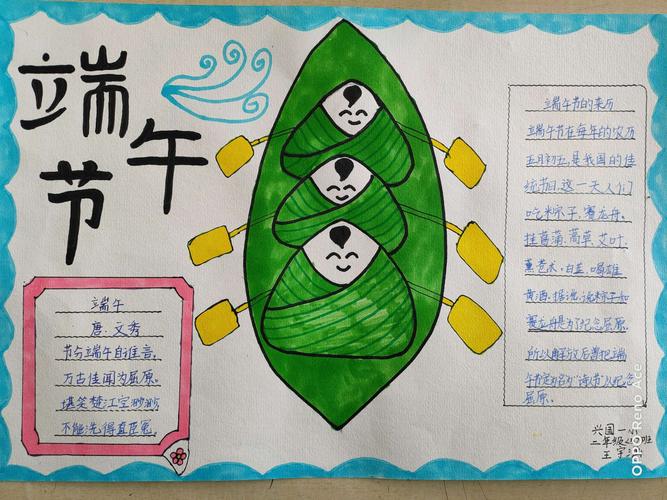 端午节
端午
唐.文秀
节分端午自谁言,
万古佳闻为屈原。
堪笑楚江空渺渺
不能洗得直臣冤。
端午节的来历
端午节在每年的农历
五月初五,是我国的佳
统节日,这一天人们
吃粽子,赛龙舟,
挂菖蒲,蒿草,艾叶,
薰苍术,白芷,喝雄
黄酒。据说,说粽子和
赛龙舟是为了纪念屈原.
所以解放后曾把端
午节定名为"诗节"以纪念
屈原。
兴国一小
二年级 班
王宇
OPPO Reno Ace